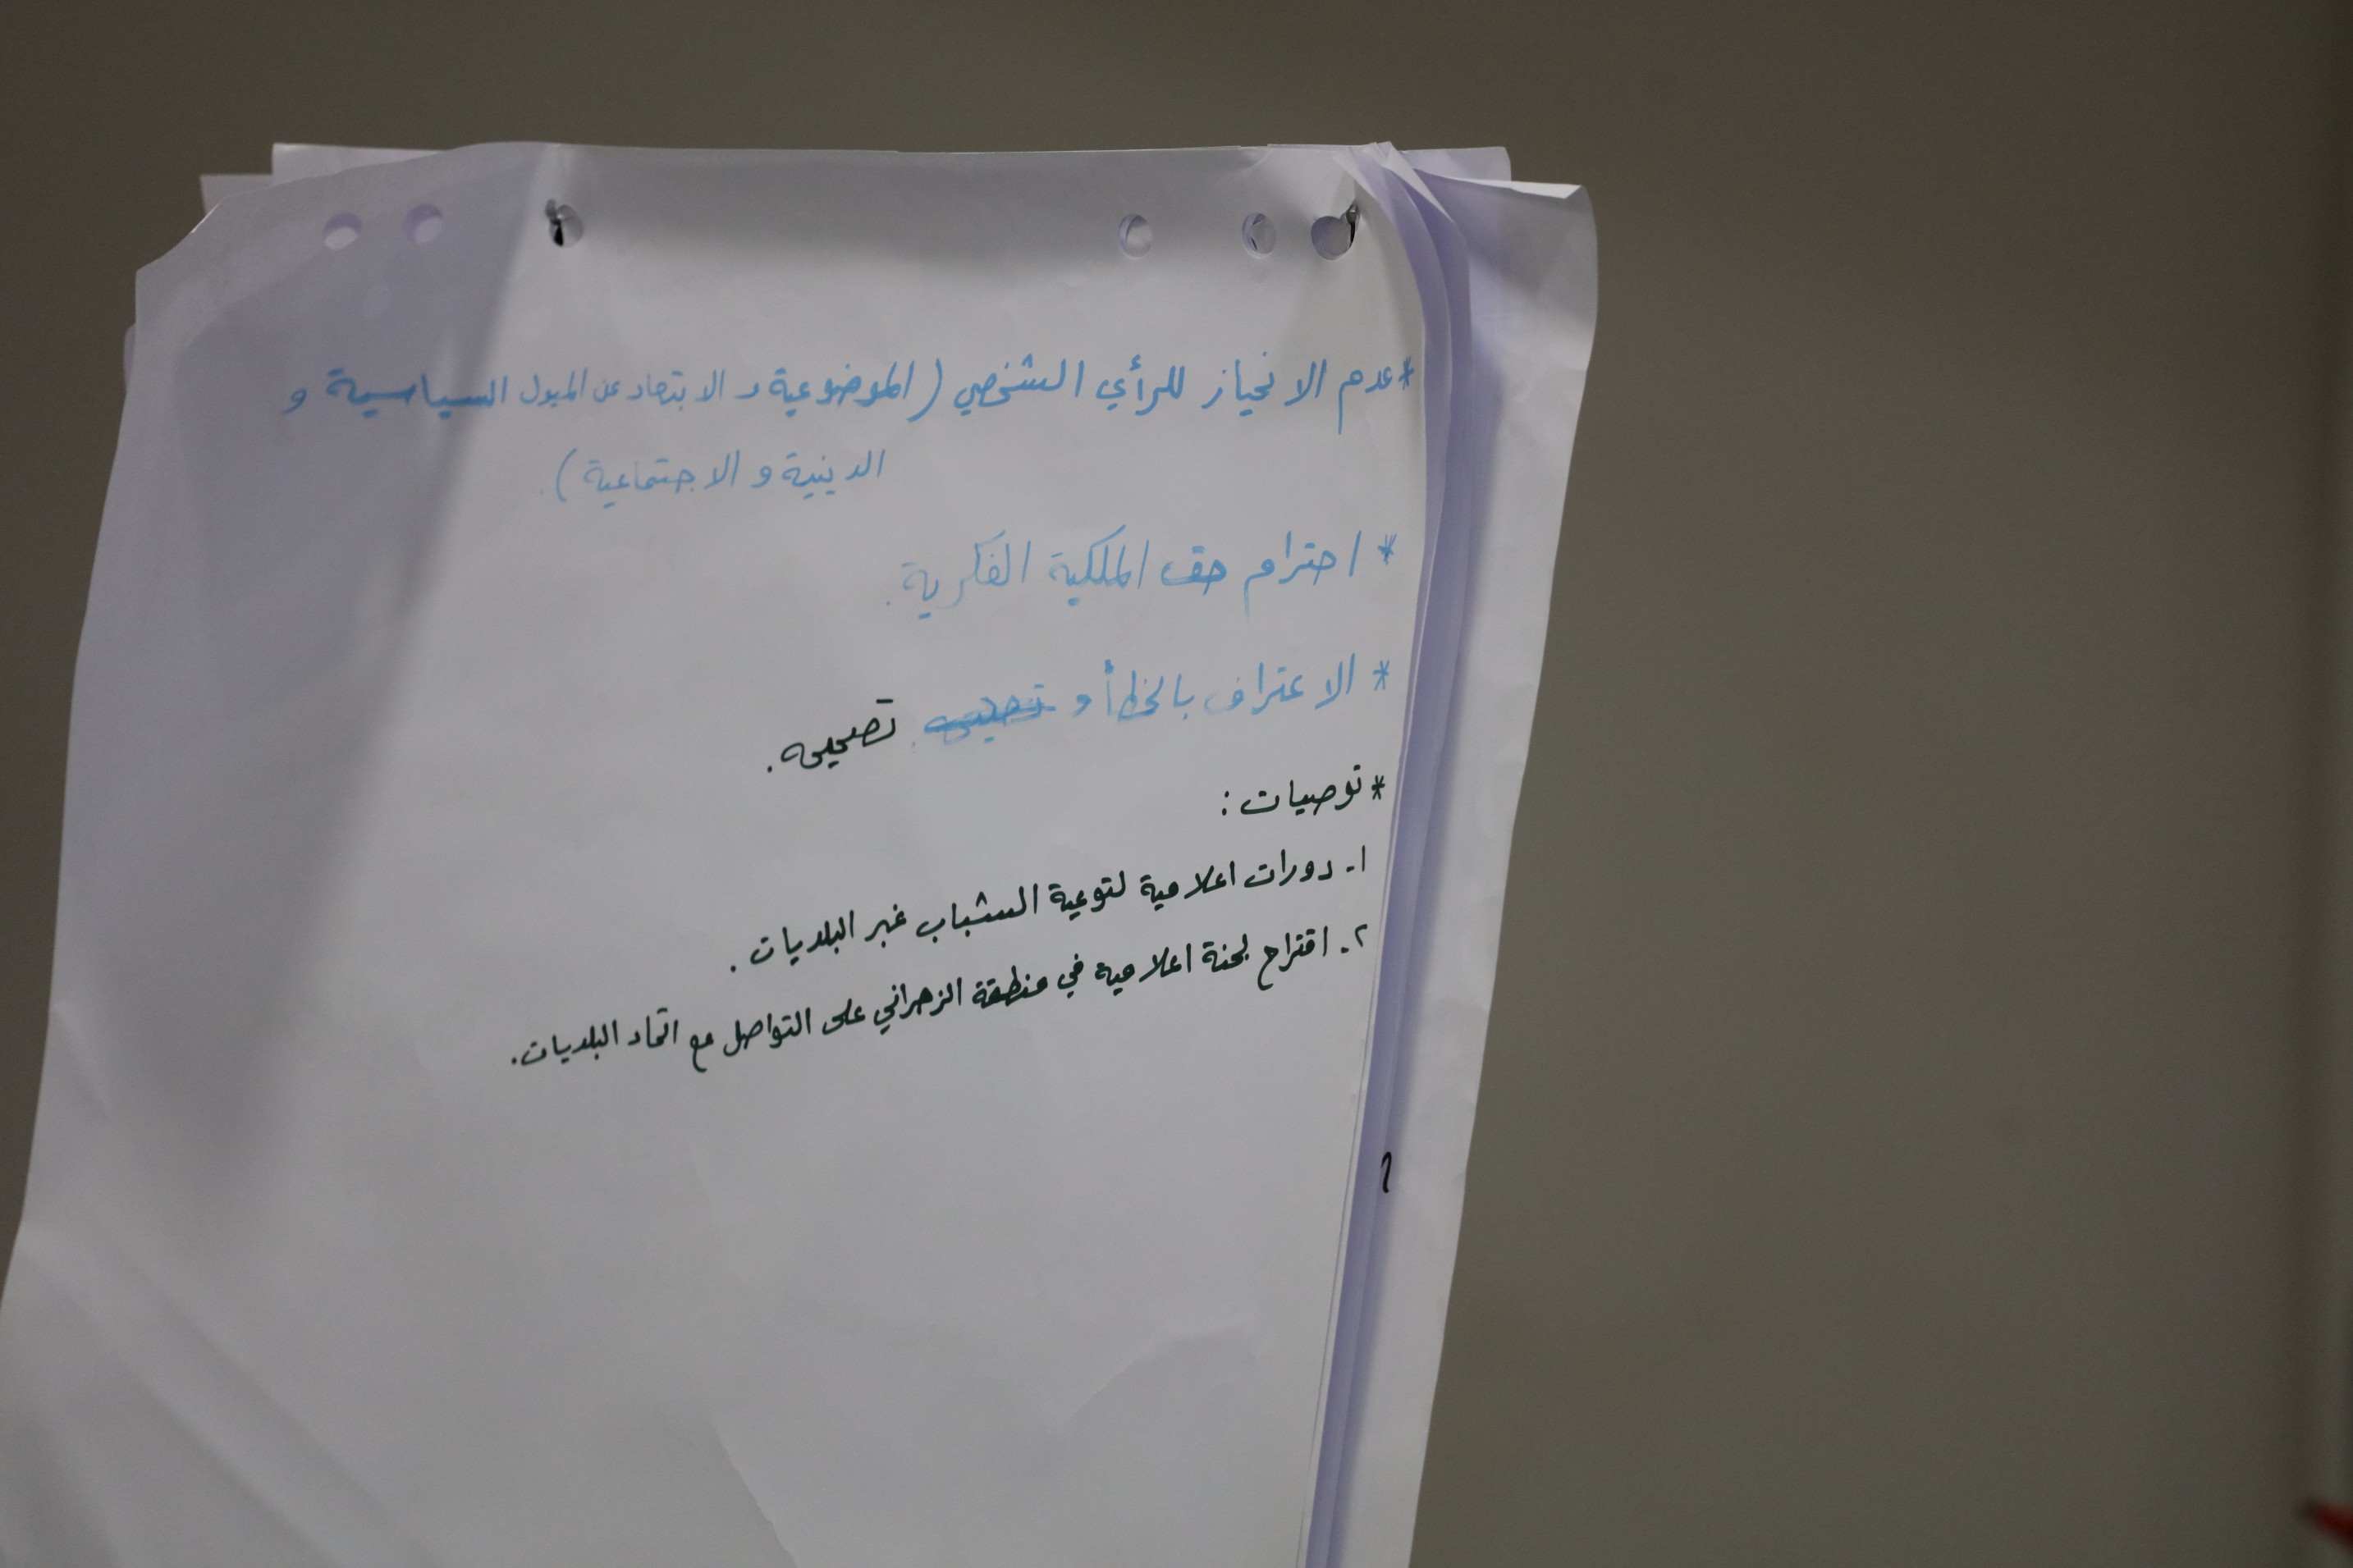 * عدم الانحياز للرأي الشخصي (الموضوعية و الابتعاد عن الميول السياسية و
الدينية و الاجتماعية).
* احترام حق الملكية الفكرية.
* الاعتراف بالخطأ و تصحيحه.
* توصيات :
١- دورات اعلامية لتوعية الشباب عبر البلديات.
٢- اقتراح لجنة اعلامية في منطقة الزهراني على التواصل مع اتحاد البلديات.